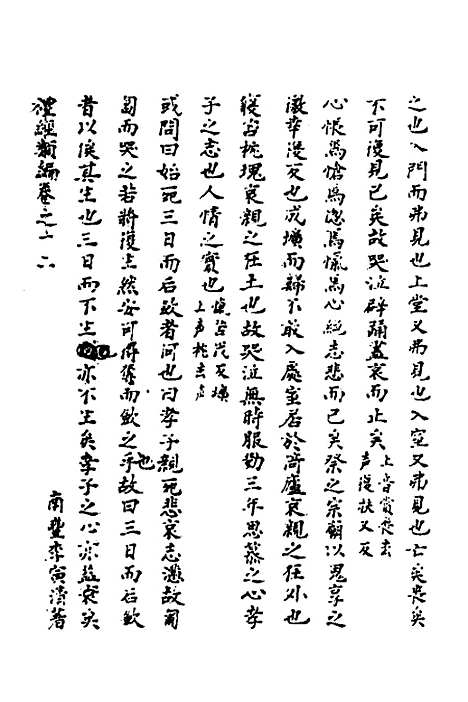 之也入門而弗見也上堂又弗見也入室又弗見也亡矣喪矣
不可復見已矣故哭泣辟踊盡哀而止矣上音賞喪去声復扶又反
心悵焉愴焉惚焉愾焉心絕志悲而已矣祭之宗廟以鬼享之
徼幸復反也成壙而歸不敢入處室居於倚廬哀親之在外也
寢苫枕塊哀親之在土也故哭泣無時服勤三年思慕之心孝
子之志也人情之實也上声枕去声
或問曰始死三日而后斂者何也曰孝子親死悲哀志懣故匍
匐而哭之若將復生然安可得奪而斂之乎故曰三日而后斂
者以俟其生也三日而不生亦不生矣孝子之心亦益衰矣
禮經類編卷之十二
南豐李寅清著